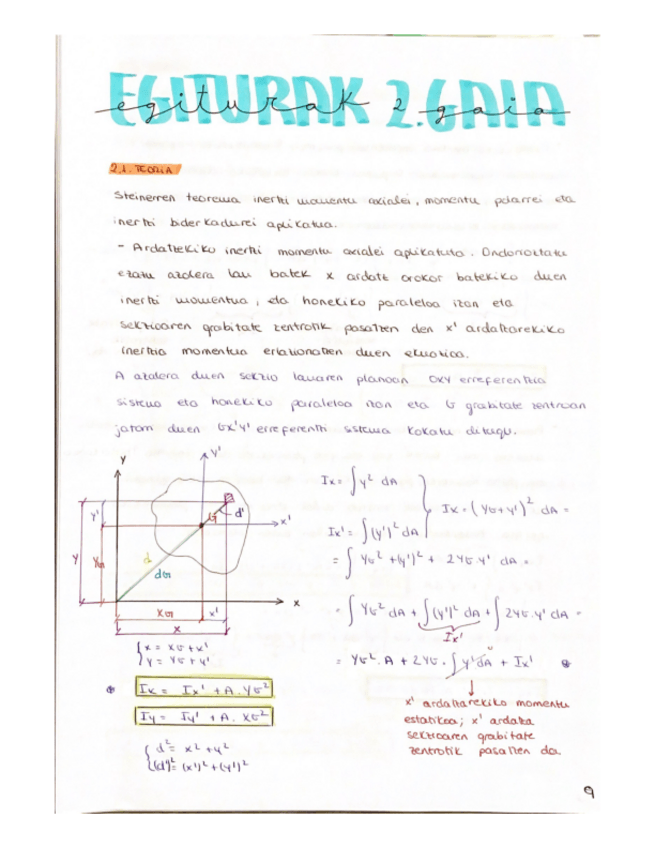 EGITURAK 2.GAIA
egiturak 2.gaia
2.1. TEORIA
Steinerren teorema inertzi momentu axialei, momentu polarrei eta
inertzi biderkadurei aplikatua.
- Ardatzekiko inertzi momentu axialei aplikatuta. Ondorioztatu
ezazu azalera lau batek x ardatz orokor batekiko duen
inertzi momentua, eta honekiko paraleloa izan eta
sekzioaren grabitate zentrotik pasatzen den x' ardatzarekiko
inertzia momentua erlazionatzen duen ekuazioa.
A azalera duen sekzio lauaren planoan OXY erreferentzia
sistema eta honekiko paraleloa izan eta G grabitate zentruan
jatorri duen Gx'y' erreferentzi sistema kokatu ditugu.
Y
Y'
Y'
G
d'
x'
Y
YG
d
dG
x
XG
x'
x
{x = XG + x'
y = YG + y'
Ix = Ix' + A . YG²
Iy = Iy' + A . XG²
{d² = x² + y²
(d')² = (x')² + (y')²
Ix = ∫ y² dA
Ix' = ∫ (y')² dA
Ix = (YG + y')² dA =
= ∫ YG² + (y')² + 2YG . y' dA =
= ∫ YG² dA + ∫ (y')² dA + ∫ 2YG . y' dA =
Ix'
= YG² . A + 2YG . ∫ y' dA + Ix'
x' ardatzarekiko momentu
estatikoa; x' ardatza
sekzioaren grabitate
zentrotik pasatzen da.
9